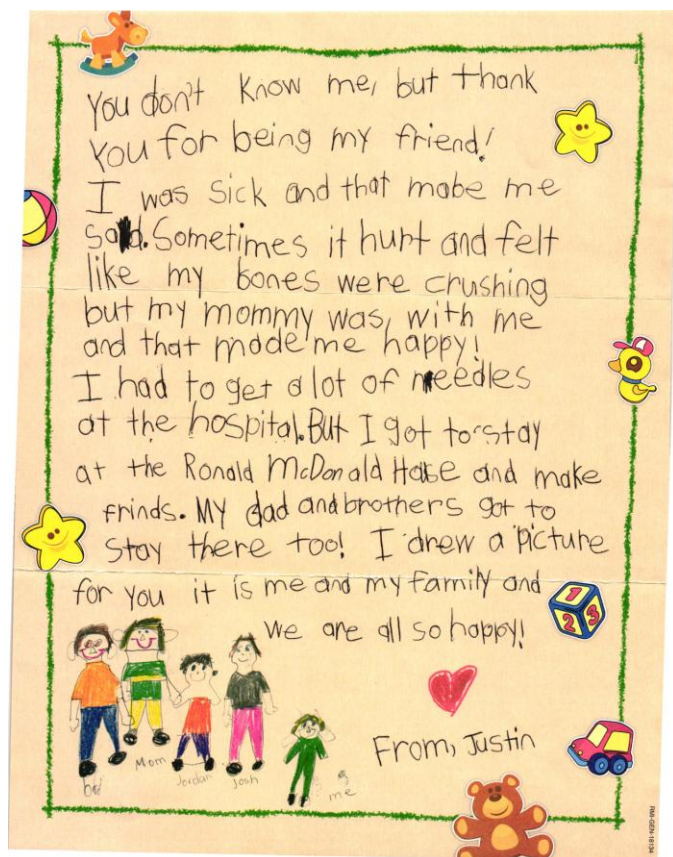 You don't know me, but thank
You for being my friend!
I was sick and that mabe me
sad. Sometimes it hurt and felt
like my bones were crushing
but my mommy was, with me
and that made me happy!
I had to get a lot of needles
at the hospital. But I got to stay
at the Ronald McDonald House and make
frinds. MY dad and brothers got to
stay there too! I drew a picture
for you it is me and my family and
we are all so happy!
From, Justin
Mom
Jordan
Josh
me
1
2
3
RMI-GEN-18134